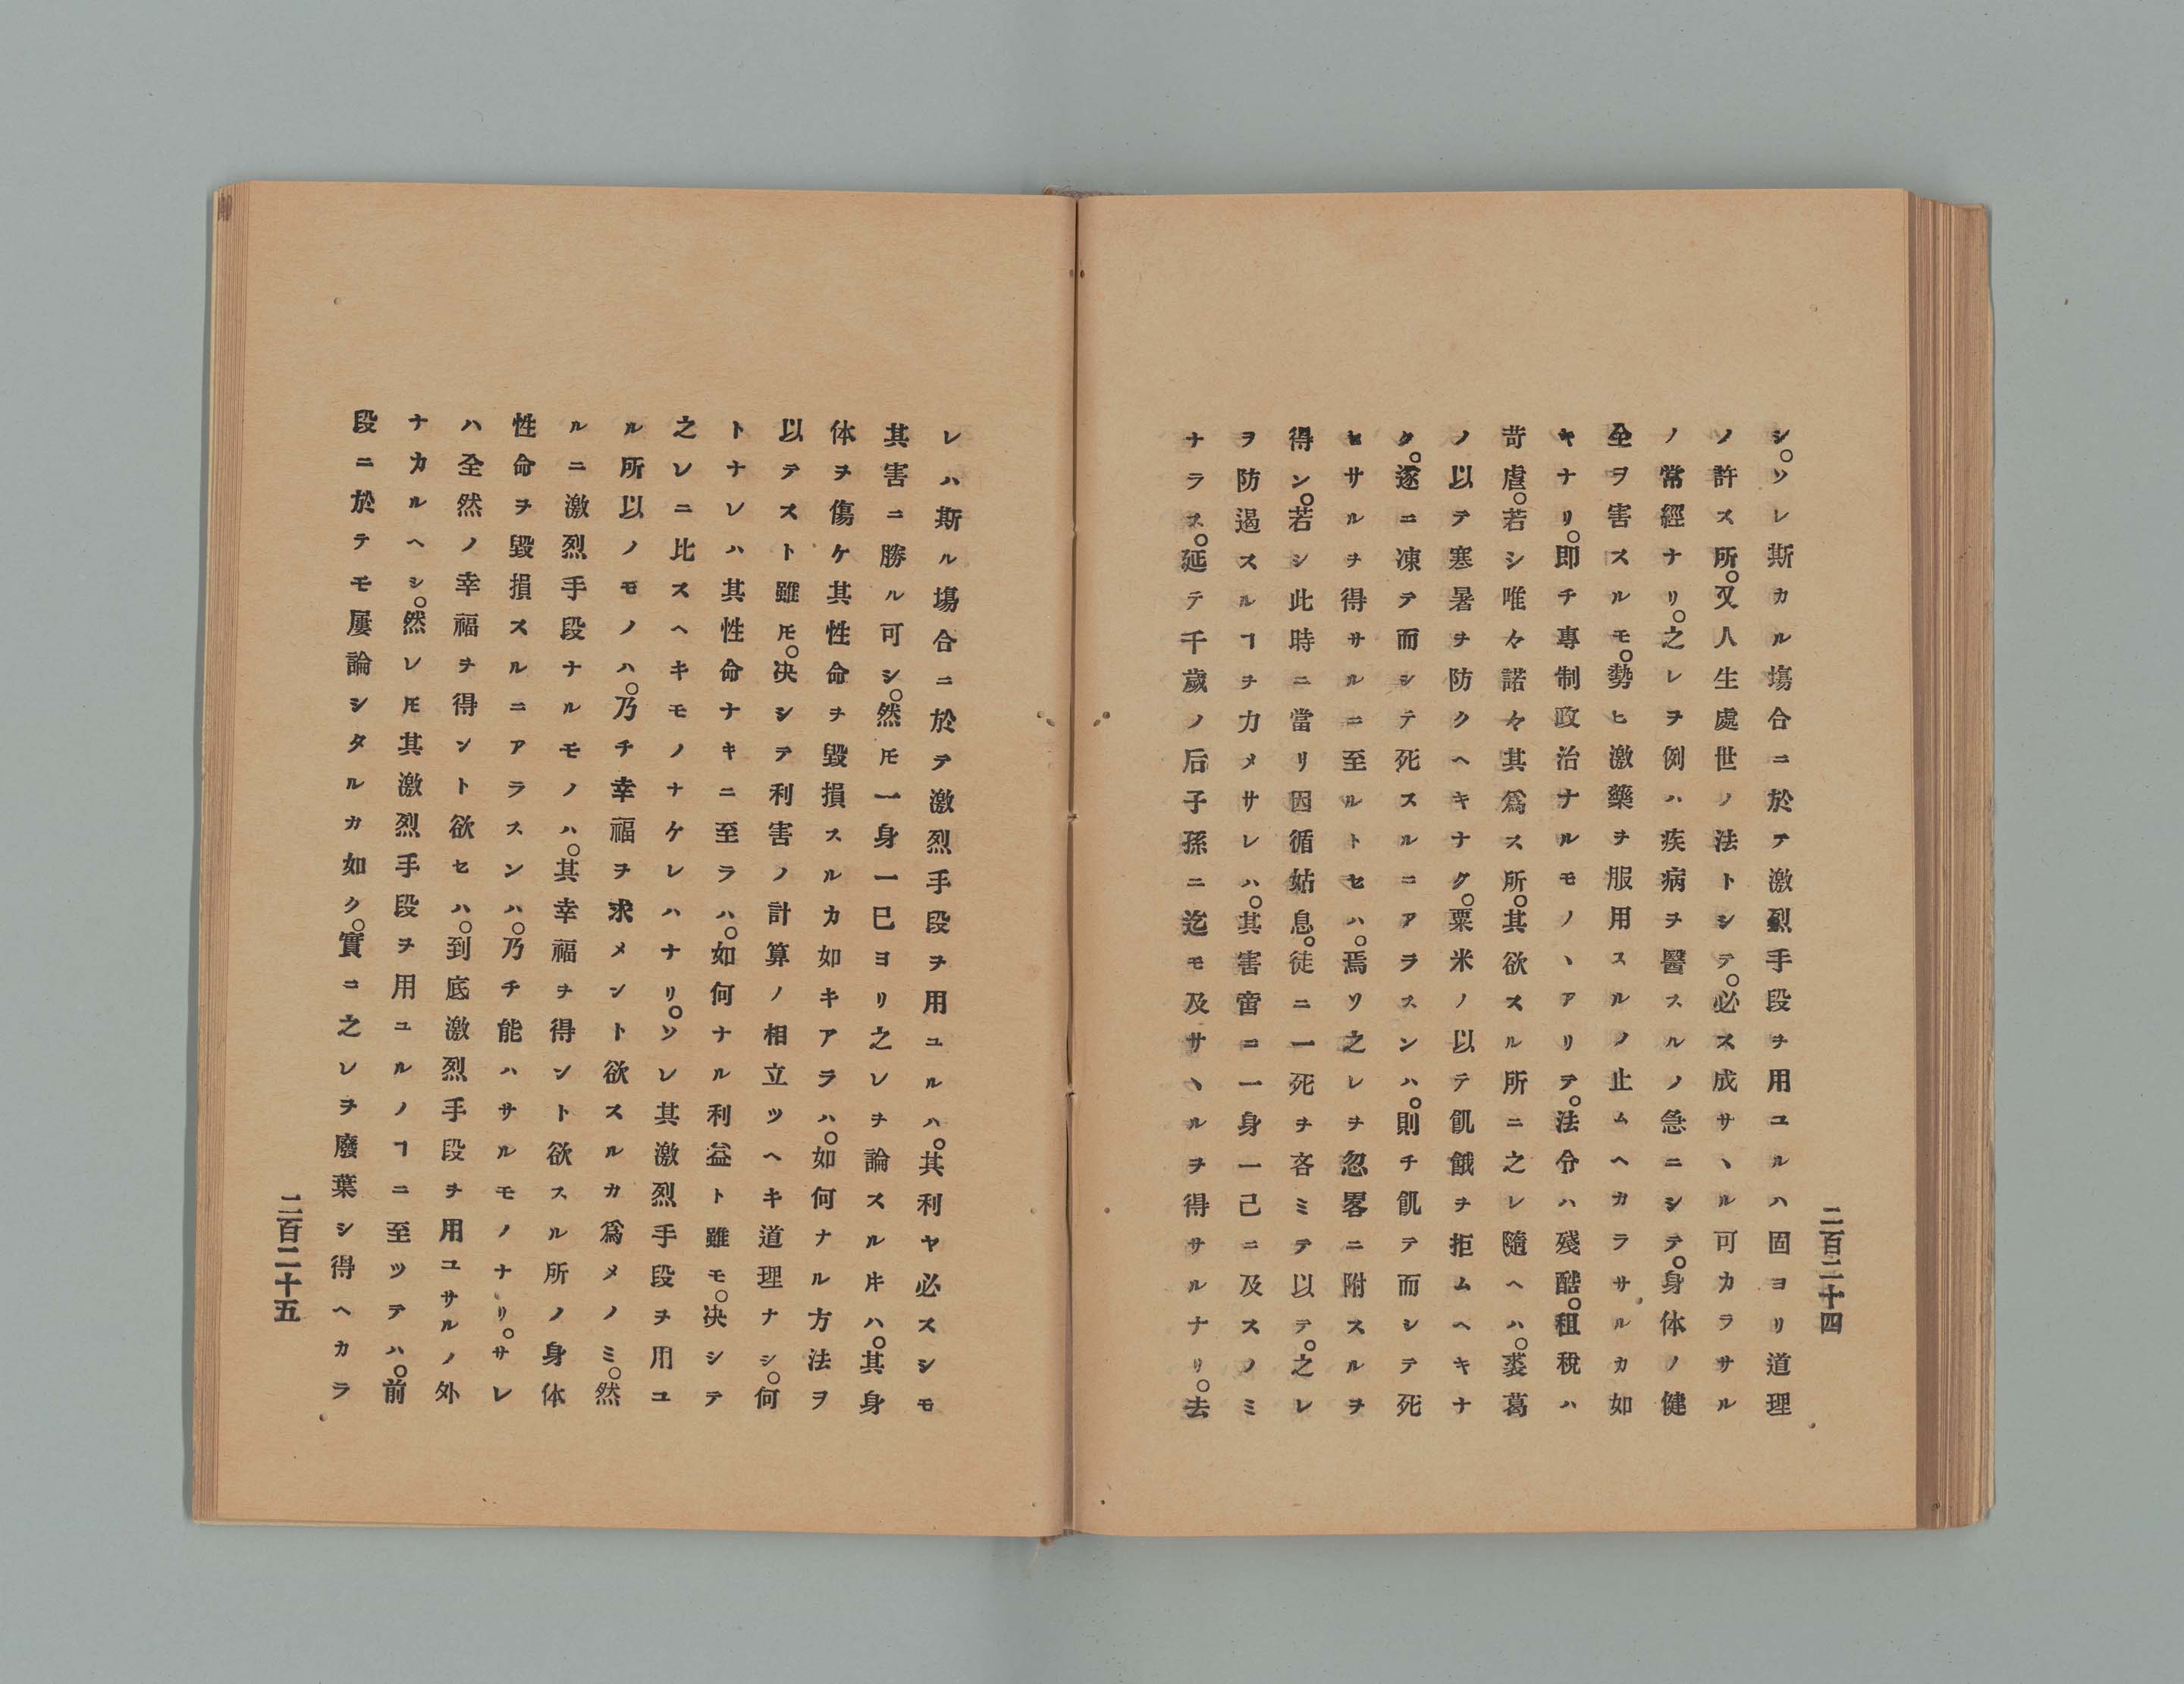 二百二十四
シ。ソレ斯カル塲合ニ於テ激烈手段ヲ用ユルハ固ヨリ道理
ノ許ス所。又人生處世ノ法トシテ。必ス成サヽル可カラサル
ノ常經ナリ。之レヲ例ハ疾病ヲ醫スルノ急ニシテ。身体ノ健
全ヲ害スルモ。勢ヒ激藥ヲ服用スルノ止ムヘカラサルカ如
キナリ。即チ專制政治ナルモノヽアリテ。法令ハ殘酷。租稅ハ
苛虐。若シ唯々諾々其爲ス所。其欲スル所ニ之レ隨ヘハ。裘葛
ノ以テ寒暑ヲ防クヘキナク。粟米ノ以テ飢餓ヲ拒ムヘキナ
ク。逐ニ凍テ而シテ死スルニアラスンハ。則チ飢テ而シテ死
セサルヲ得サルニ至ルトセハ。焉ソ之レヲ忽畧ニ附スルヲ
得ン。若シ此時ニ當リ因循姑息。徒ニ一死ヲ吝ミテ以テ。之レ
ヲ防遏スルヿヲ力メサレハ。其害啻ニ一身一己ニ及スノミ
ナラス。延テ千歲ノ后子孫ニ迄モ及サヽルヲ得サルナリ。去
レハ斯ル塲合ニ於テ激烈手段ヲ用ユルハ。其利ヤ必スシモ
其害ニ勝ル可シ。然𪜈一身一已ヨリ之レヲ論スル片ハ。其身
体ヲ傷ケ其性命ヲ毀損スルカ如キアラハ。如何ナル方法ヲ
以テスト雖𪜈。决シテ利害ノ計算ノ相立ツヘキ道理ナシ。何
トナレハ其性命ナキニ至ラハ。如何ナル利益ト雖モ。决シテ
之レニ比スヘキモノナケレハナリ。ソレ其激烈手段ヲ用ユ
ル所以ノモノハ。乃チ幸福ヲ求メント欲スルカ爲メノミ。然
ルニ激烈手段ナルモノハ。其幸福ヲ得ント欲スル所ノ身体
性命ヲ毀損スルニアラスンハ。乃チ能ハサルモノナリ。サレ
ハ全然ノ幸福ヲ得ント欲セハ。到底激烈手段ヲ用ユサルノ外
ナカルヘシ。然レ𪜈其激烈手段ヲ用ユルノヿニ至ツテハ。前
段ニ於テモ屢論シタルカ如ク。實ニ之レヲ廢葉シ得ヘカラ
二百二十五